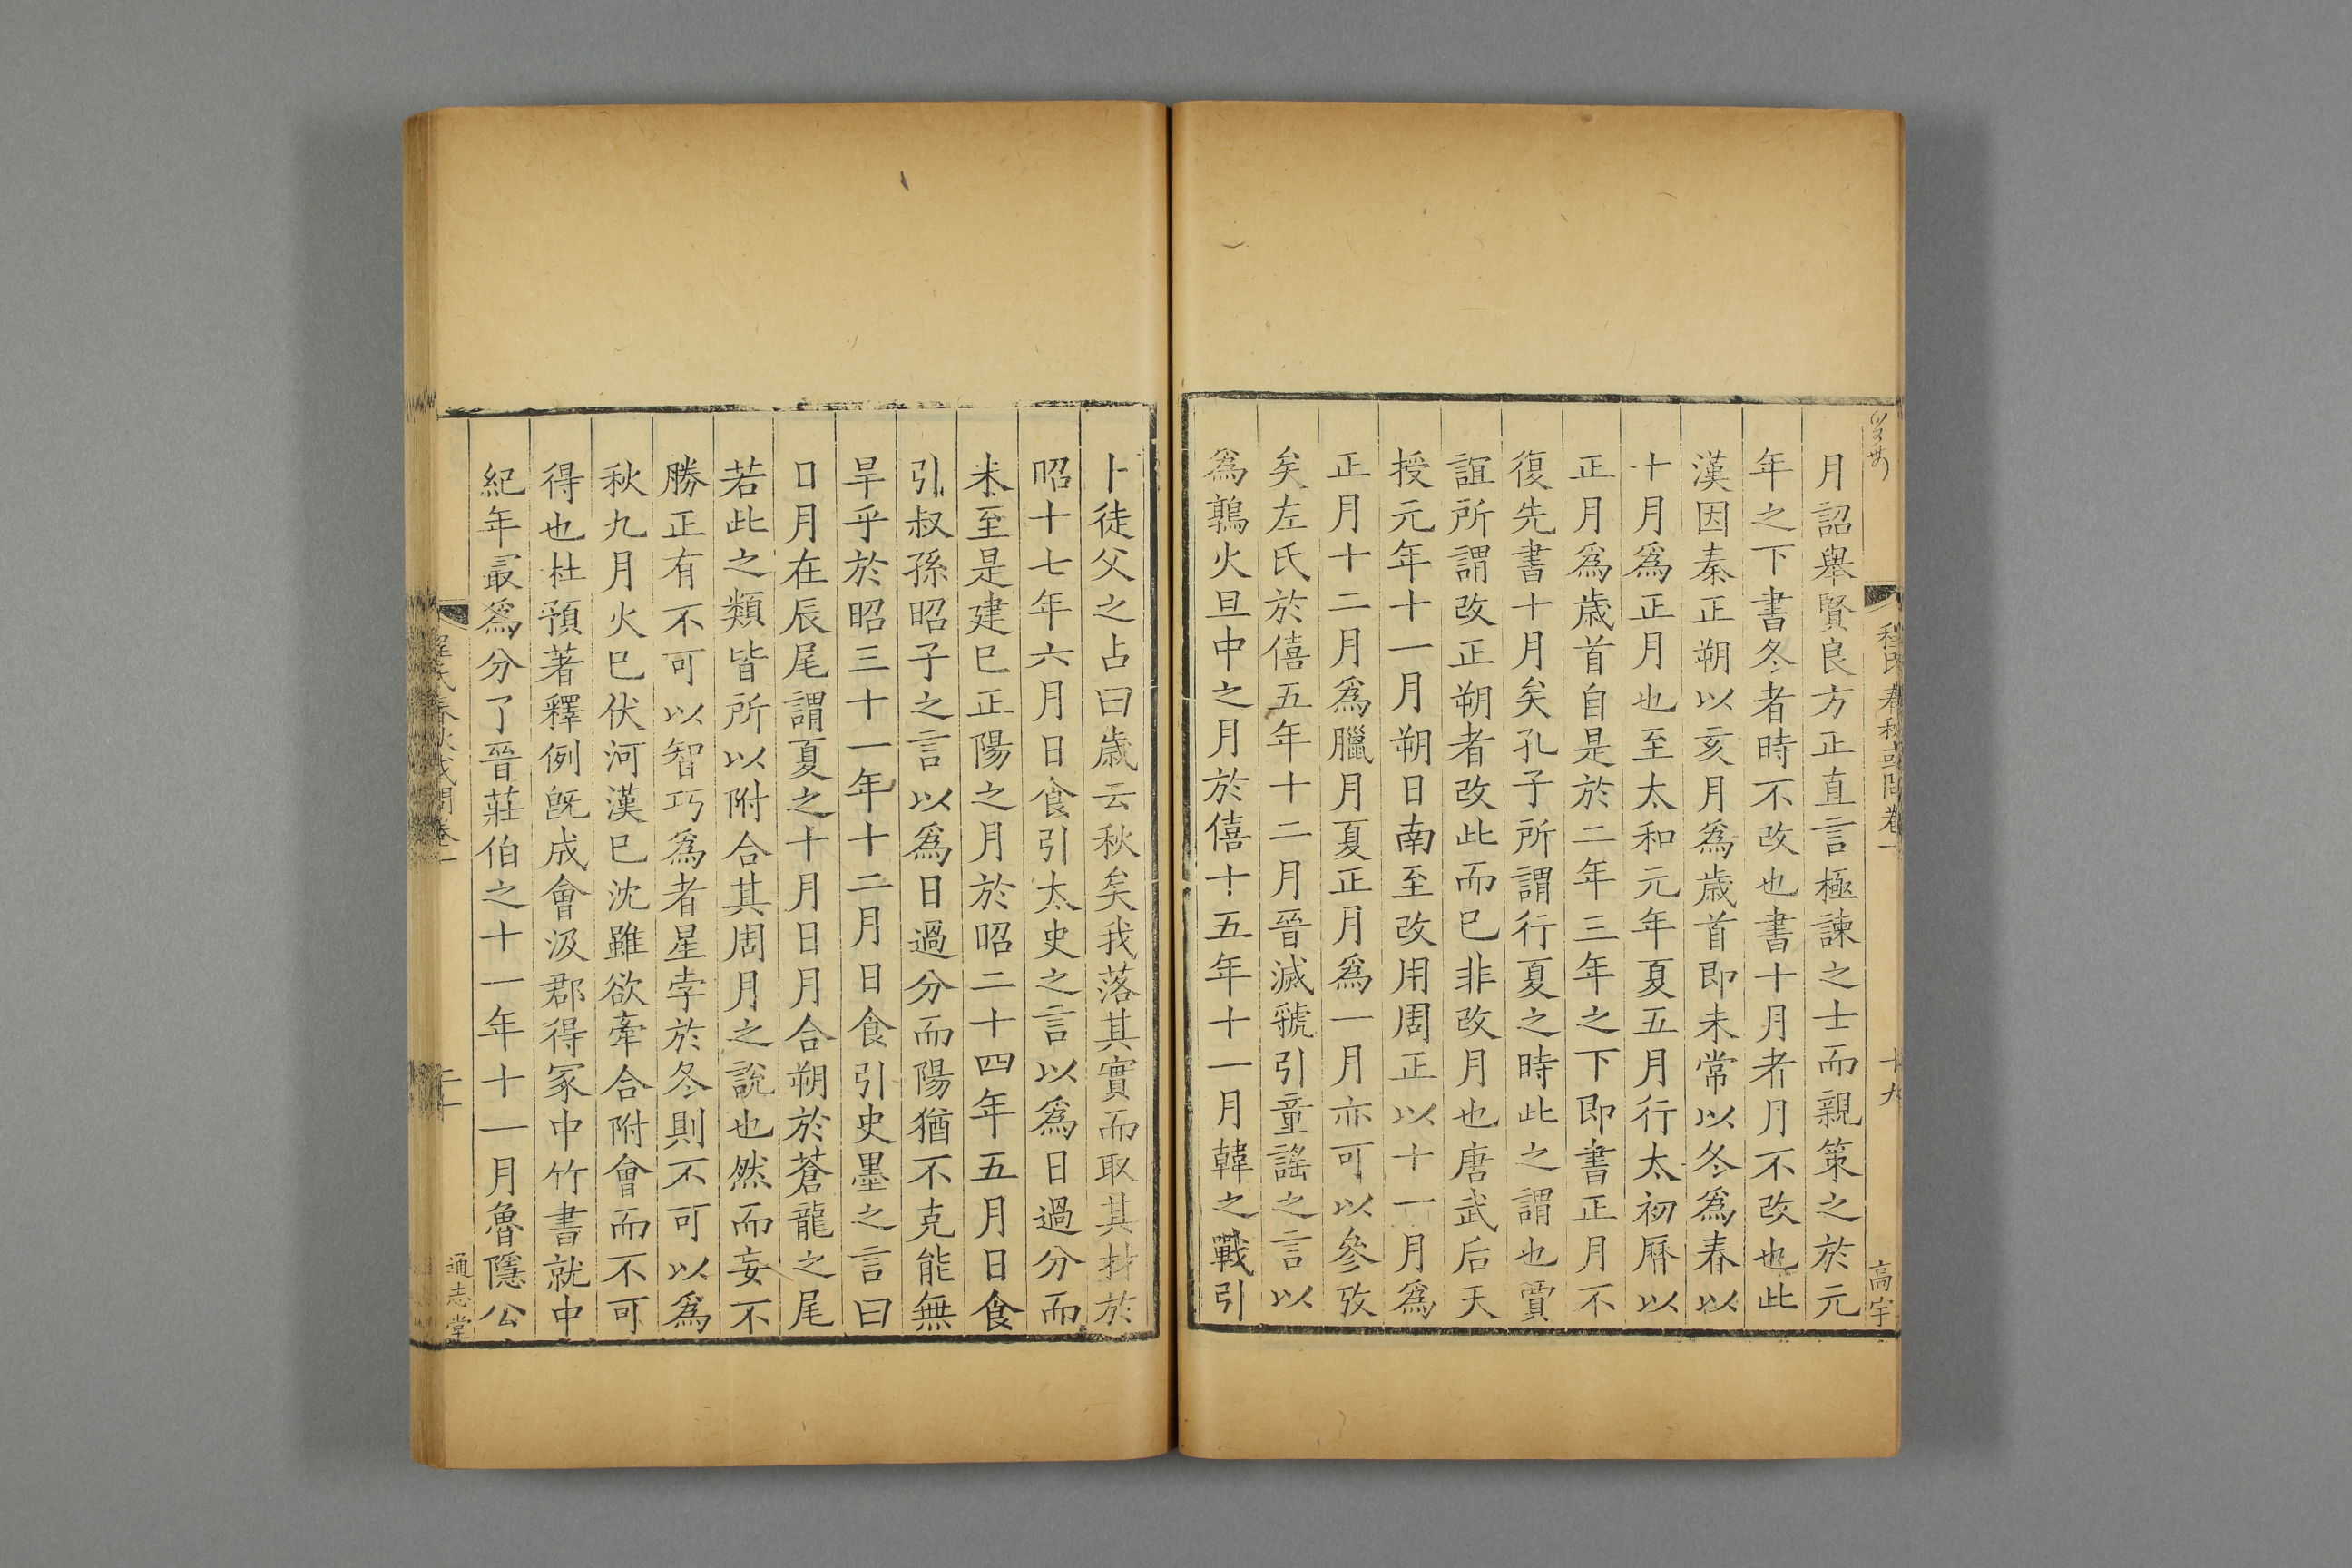 程氏春秋或問卷一
十九
高宇
月詔舉賢良方正直言極諫之士而親策之於元
年之下書冬者時不改也書十月者月不改也此
漢因秦正朔以亥月爲歲首即未常以冬爲春以
十月爲正月也至太和元年夏五月行太初曆以
正月爲歲首自是於二年三年之下即書正月不
復先書十月矣孔子所謂行夏之時此之謂也賈
誼所謂改正朔者改此而已非改月也唐武后天
授元年十一月朔日南至改用周正以十一月爲
正月十二月爲臘月夏正月爲一月亦可以參攷
矣左氏於僖五年十二月晉滅虢引童謠之言以
爲鶉火旦中之月於僖十五年十一月韓之戰引
卜徒父之占曰歲云秋矣我落其實而取其材於
昭十七年六月日食引太史之言以爲日過分而
未至是建巳正陽之月於昭二十四年五月日食
引叔孫昭子之言以爲日過分而陽猶不克能無
旱乎於昭三十一年十二月日食引史墨之言曰
日月在辰尾謂夏之十月日月合朔於蒼龍之尾
若此之類皆所以附合其周月之說也然而妄不
勝正有不可以智巧爲者星孛於冬則不可以爲
秋九月火巳伏河漢巳沈雖欲牽合附會而不可
得也杜預著釋例旣成會汲郡得冢中竹書就中
紀年最爲分了晉莊伯之十一年十一月魯隱公
程氏春秋或問卷一
通志堂